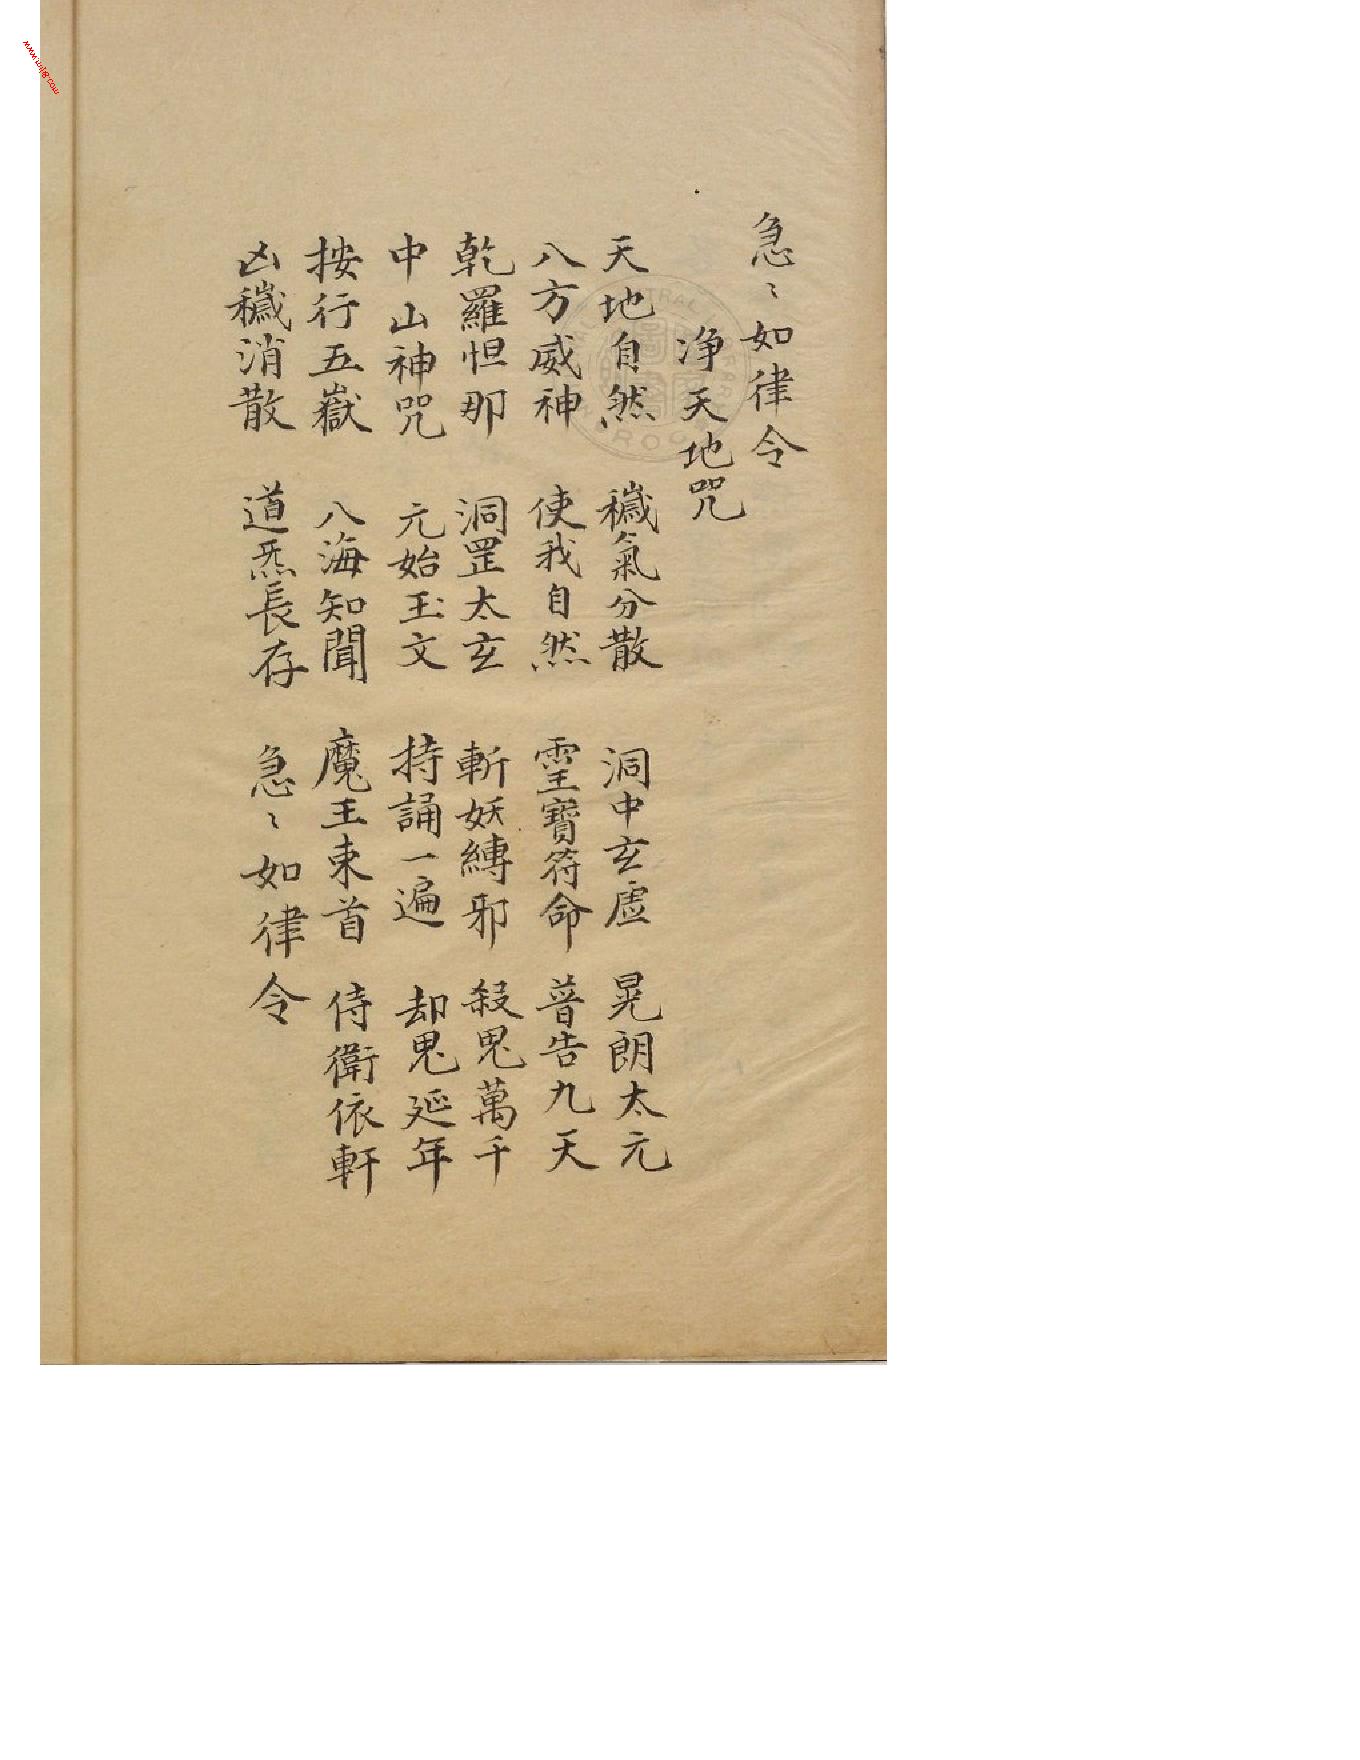 急〻如律令
淨天地咒
天地自然 穢氣分散 洞中玄虛 晃朗太元
八方威神 使我自然 霊寶符命 普告九天
乾羅怛那 洞罡太玄 斬妖縛邪 殺鬼萬千
中山神咒 元始玉文 持誦一遍 却鬼延年
按行五嶽 八海知聞 魔王束首 侍衛依軒
凶穢消散 道炁長存 急〻如律令